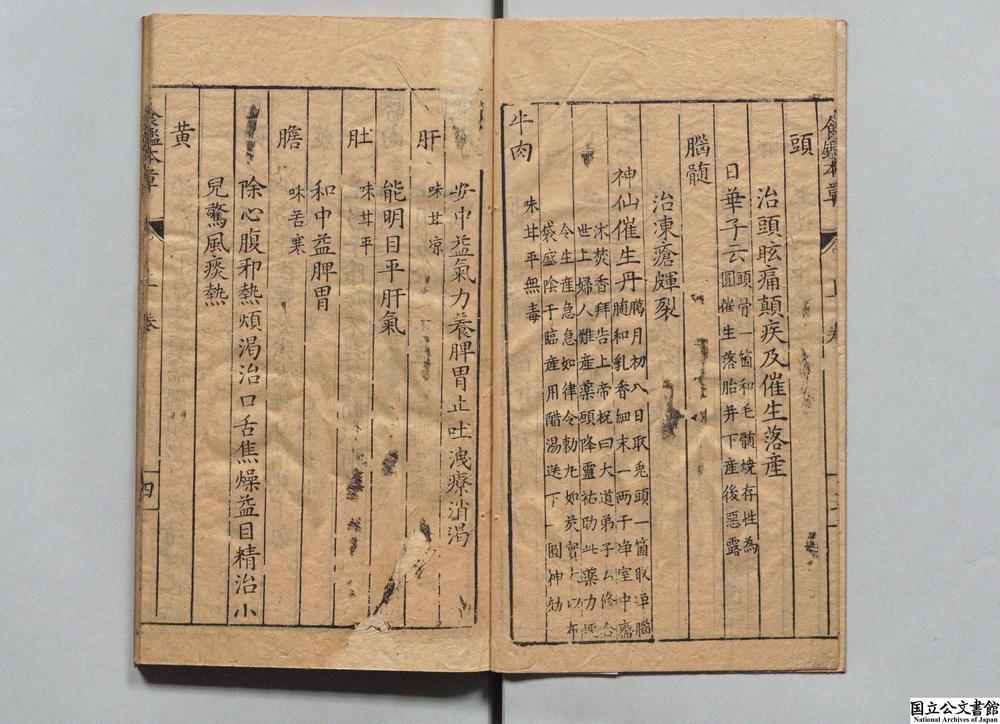 頭
治頭眩痛顛疾及催生落産
日華子云頭骨一箇和毛髓燒存性為
圓催生落胎并下産後惡露
腦髓
治凍瘡皸裂
神仙催生丹臈月初八日取兎頭一箇取
随和乳香細末一两于净室中齋
沐焚香拜告上帝祝曰大道弟子厶修合
世上婦人難産藥頭降靈祐助此藥力
令生産急急如律令勅丸如芡實大以布
袋盛陰干臨産用醋湯送下一圓神効
牛肉
味甘平無毒
安中益氣力養脾胃止吐洩療消渴
肝
味甘凉
能明目平肝氣
肚
味甘平
和中益脾胃
膽
味苦寒
除心腹邪熱煩渴治口舌焦燥益目精治小
兒驚風痰熱
黄
食鑑本草
四
国立公文書館
National Archives of Japan